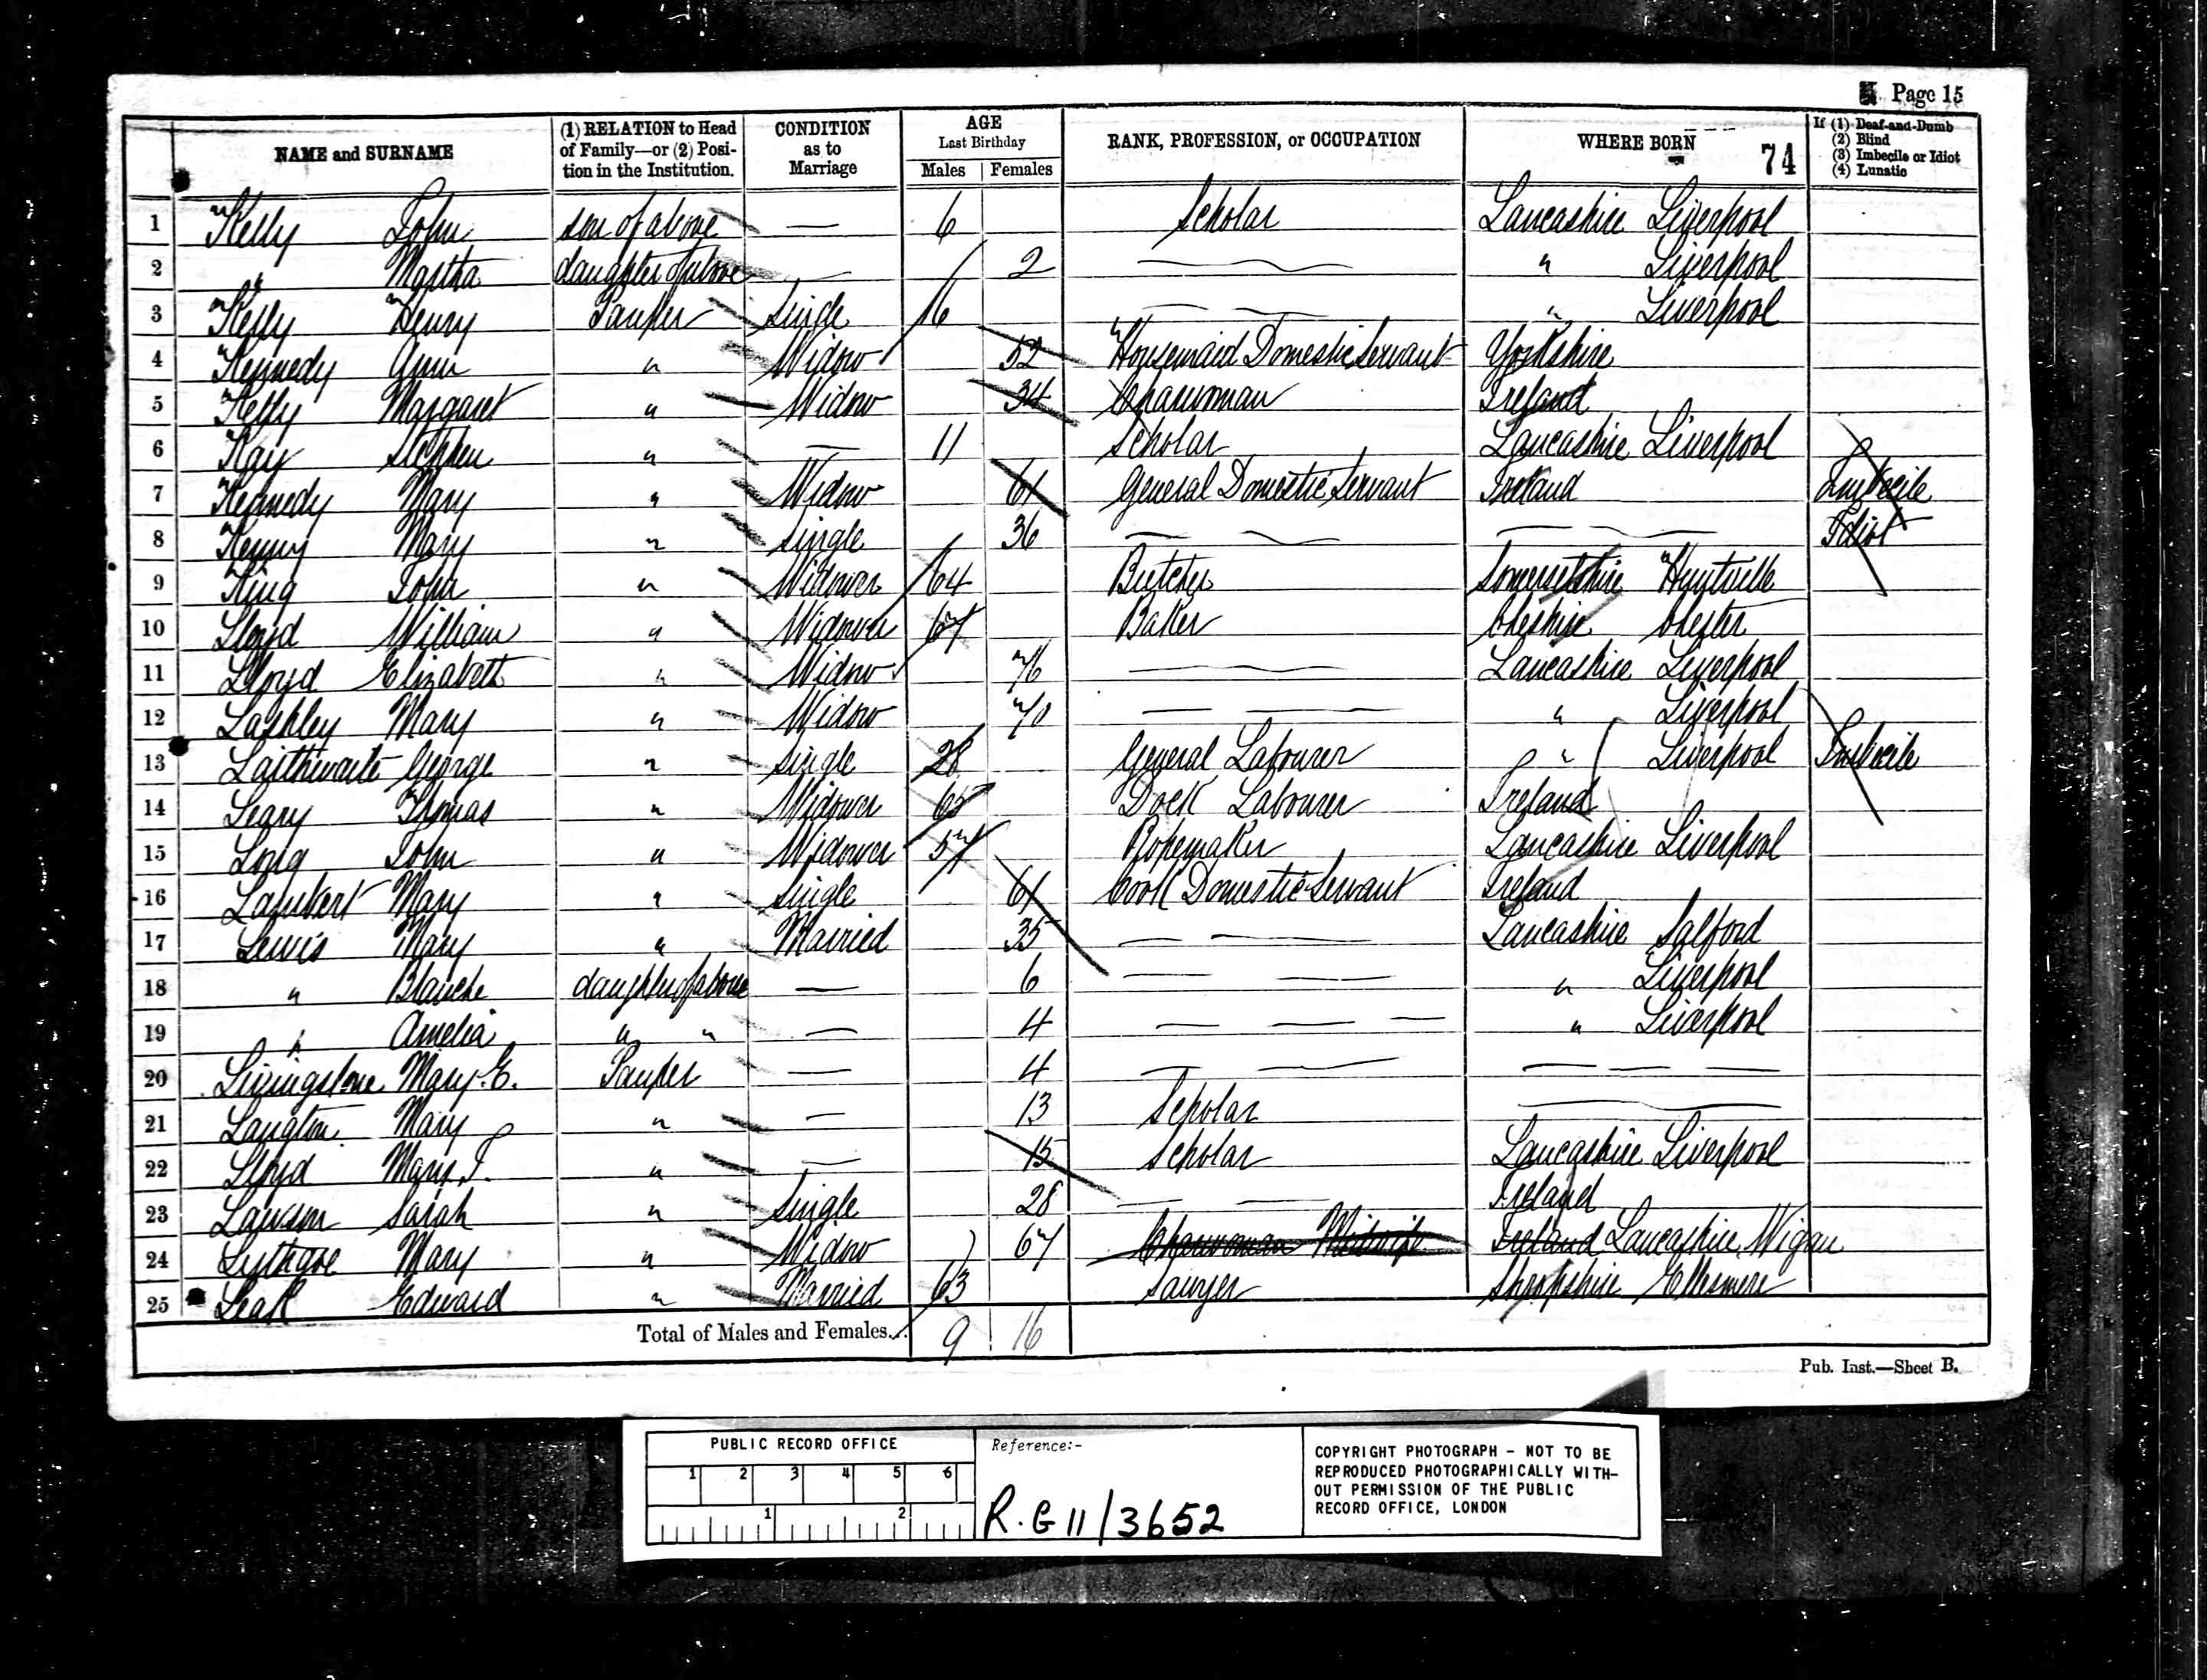 Page 15
NAME and SURNAME | (1) RELATION to Head of Family—or (2) Position in the Institution. | CONDITION as to Marriage | AGE Last Birthday Males | Females | RANK, PROFESSION, or OCCUPATION | WHERE BORN 74 | If (1) Deaf-and-Dumb (2) Blind (3) Imbecile or Idiot (4) Lunatic
1 Kelly John son of above — 6 Scholar Lancashire Liverpool
2 " Martha daughter of above — 2 — " Liverpool
3 Kelly Henry Pauper Single 16 — " Liverpool
4 Kennedy Ann " Widow 52 Housemaid Domestic Servant Yorkshire
5 Kelly Margaret " Widow 34 Charwoman Ireland
6 Kay Stephen " — 11 Scholar Lancashire Liverpool
7 Kennedy Mary " Widow 61 General Domestic Servant Ireland Imbecile
8 Kenny Mary " Single 36 — — Idiot
9 King John " Widower 64 Butcher Somersetshire
10 Lloyd William " Widower 67 Baker Cheshire Chester
11 Lloyd Elizabeth " Widow 76 — Lancashire Liverpool
12 Lashley Mary " Widow 70 — " Liverpool
13 Laithwaite George " Single 28 General Labourer " Liverpool Imbecile
14 Leary Thomas " Widower 65 Dock Labourer Ireland
15 Long John " Widower 57 Ropemaker Lancashire Liverpool
16 Lambert Mary " Single 61 Cook Domestic Servant Ireland
17 Lewis Mary " Married 35 — Lancashire Salford
18 " Blanche daughter of above — 6 — " Liverpool
19 " Amelia " " — 4 — " Liverpool
20 Livingstone Mary E. Pauper — 4 — —
21 Langton Mary " — 13 Scholar —
22 Lloyd Mary " — 15 Scholar Lancashire Liverpool
23 Lawson Sarah " Single 28 — Ireland
24 Lythgoe Mary " Widow 67 Charwoman Midwife Ireland Lancashire Wigan
25 Leak Edward " Married 63 Sawyer Shropshire Ellesmere
Total of Males and Females... 9 16
Pub. Inst.—Sheet B.
PUBLIC RECORD OFFICE
1 2 3 4 5 6
1 2
Reference:-
R.G 11/3652
COPYRIGHT PHOTOGRAPH - NOT TO BE
REPRODUCED PHOTOGRAPHICALLY WITH-
OUT PERMISSION OF THE PUBLIC
RECORD OFFICE, LONDON